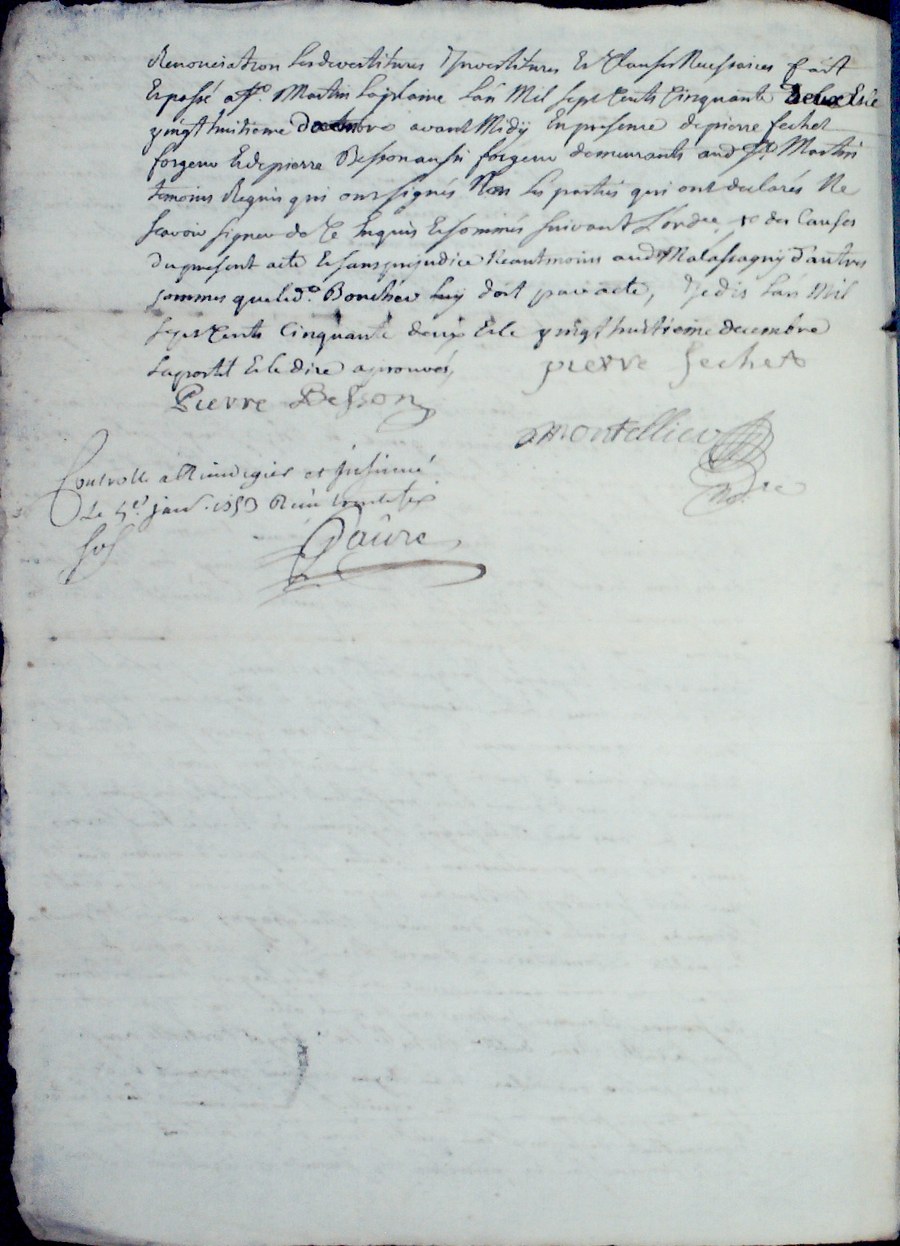 Renonciation les devestitures Investitures Et Clauses Necessaires fait
Et passé a St. Martin La plaine L'an Mil Sept Cents Cinquante deux Et le
vingt huitieme decembre avant Midy En presence de pierre Sechet
forgeur Et de pierre Besson aussi forgeur demeurants aud. St. Martin
temoins Requis qui ont signés Non les parties qui ont declarés Ne
scavoir signer de Ce Enquis Et sommés suivant L'ordre, des Causes
du present acte Et sans prejudice Neantmoins aud Malassagny d'autres
sommes que led. Bonchéu luy doit par acte, Je dis L'an Mil
Sept Cents Cinquante deux Et le vingt huitieme decembre
La Et le dire aprouvés,
pierre Sechet
Pierre Besson
Montellieu
Nore
Controllé a Rivedegier et Insinué
Le janv. 1753
Faure